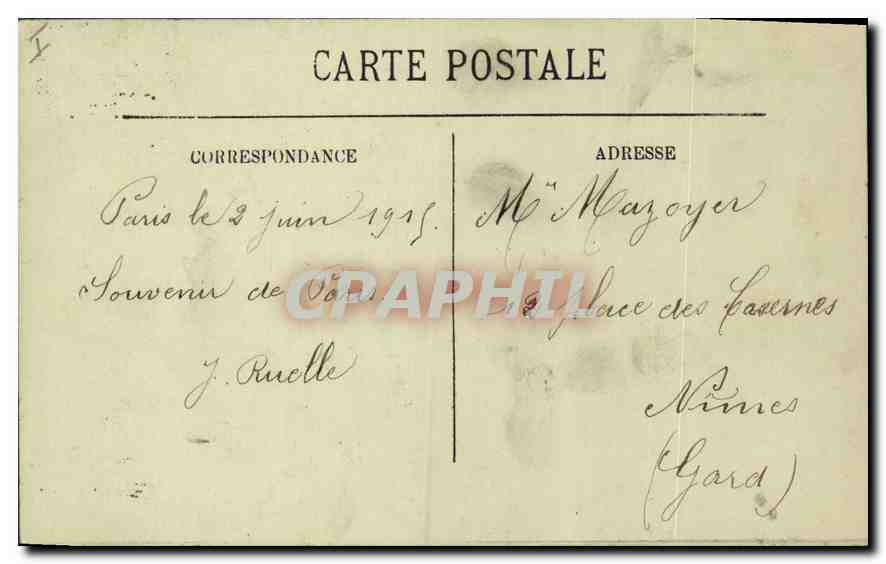 I
CARTE POSTALE
CORRESPONDANCE
Paris le 2 juin 1915.
Souvenir de Paris
J. Ruelle
ADRESSE
Mr Mazoyer
12 place des Casernes
Nîmes
(Gard)
CPAPHIL